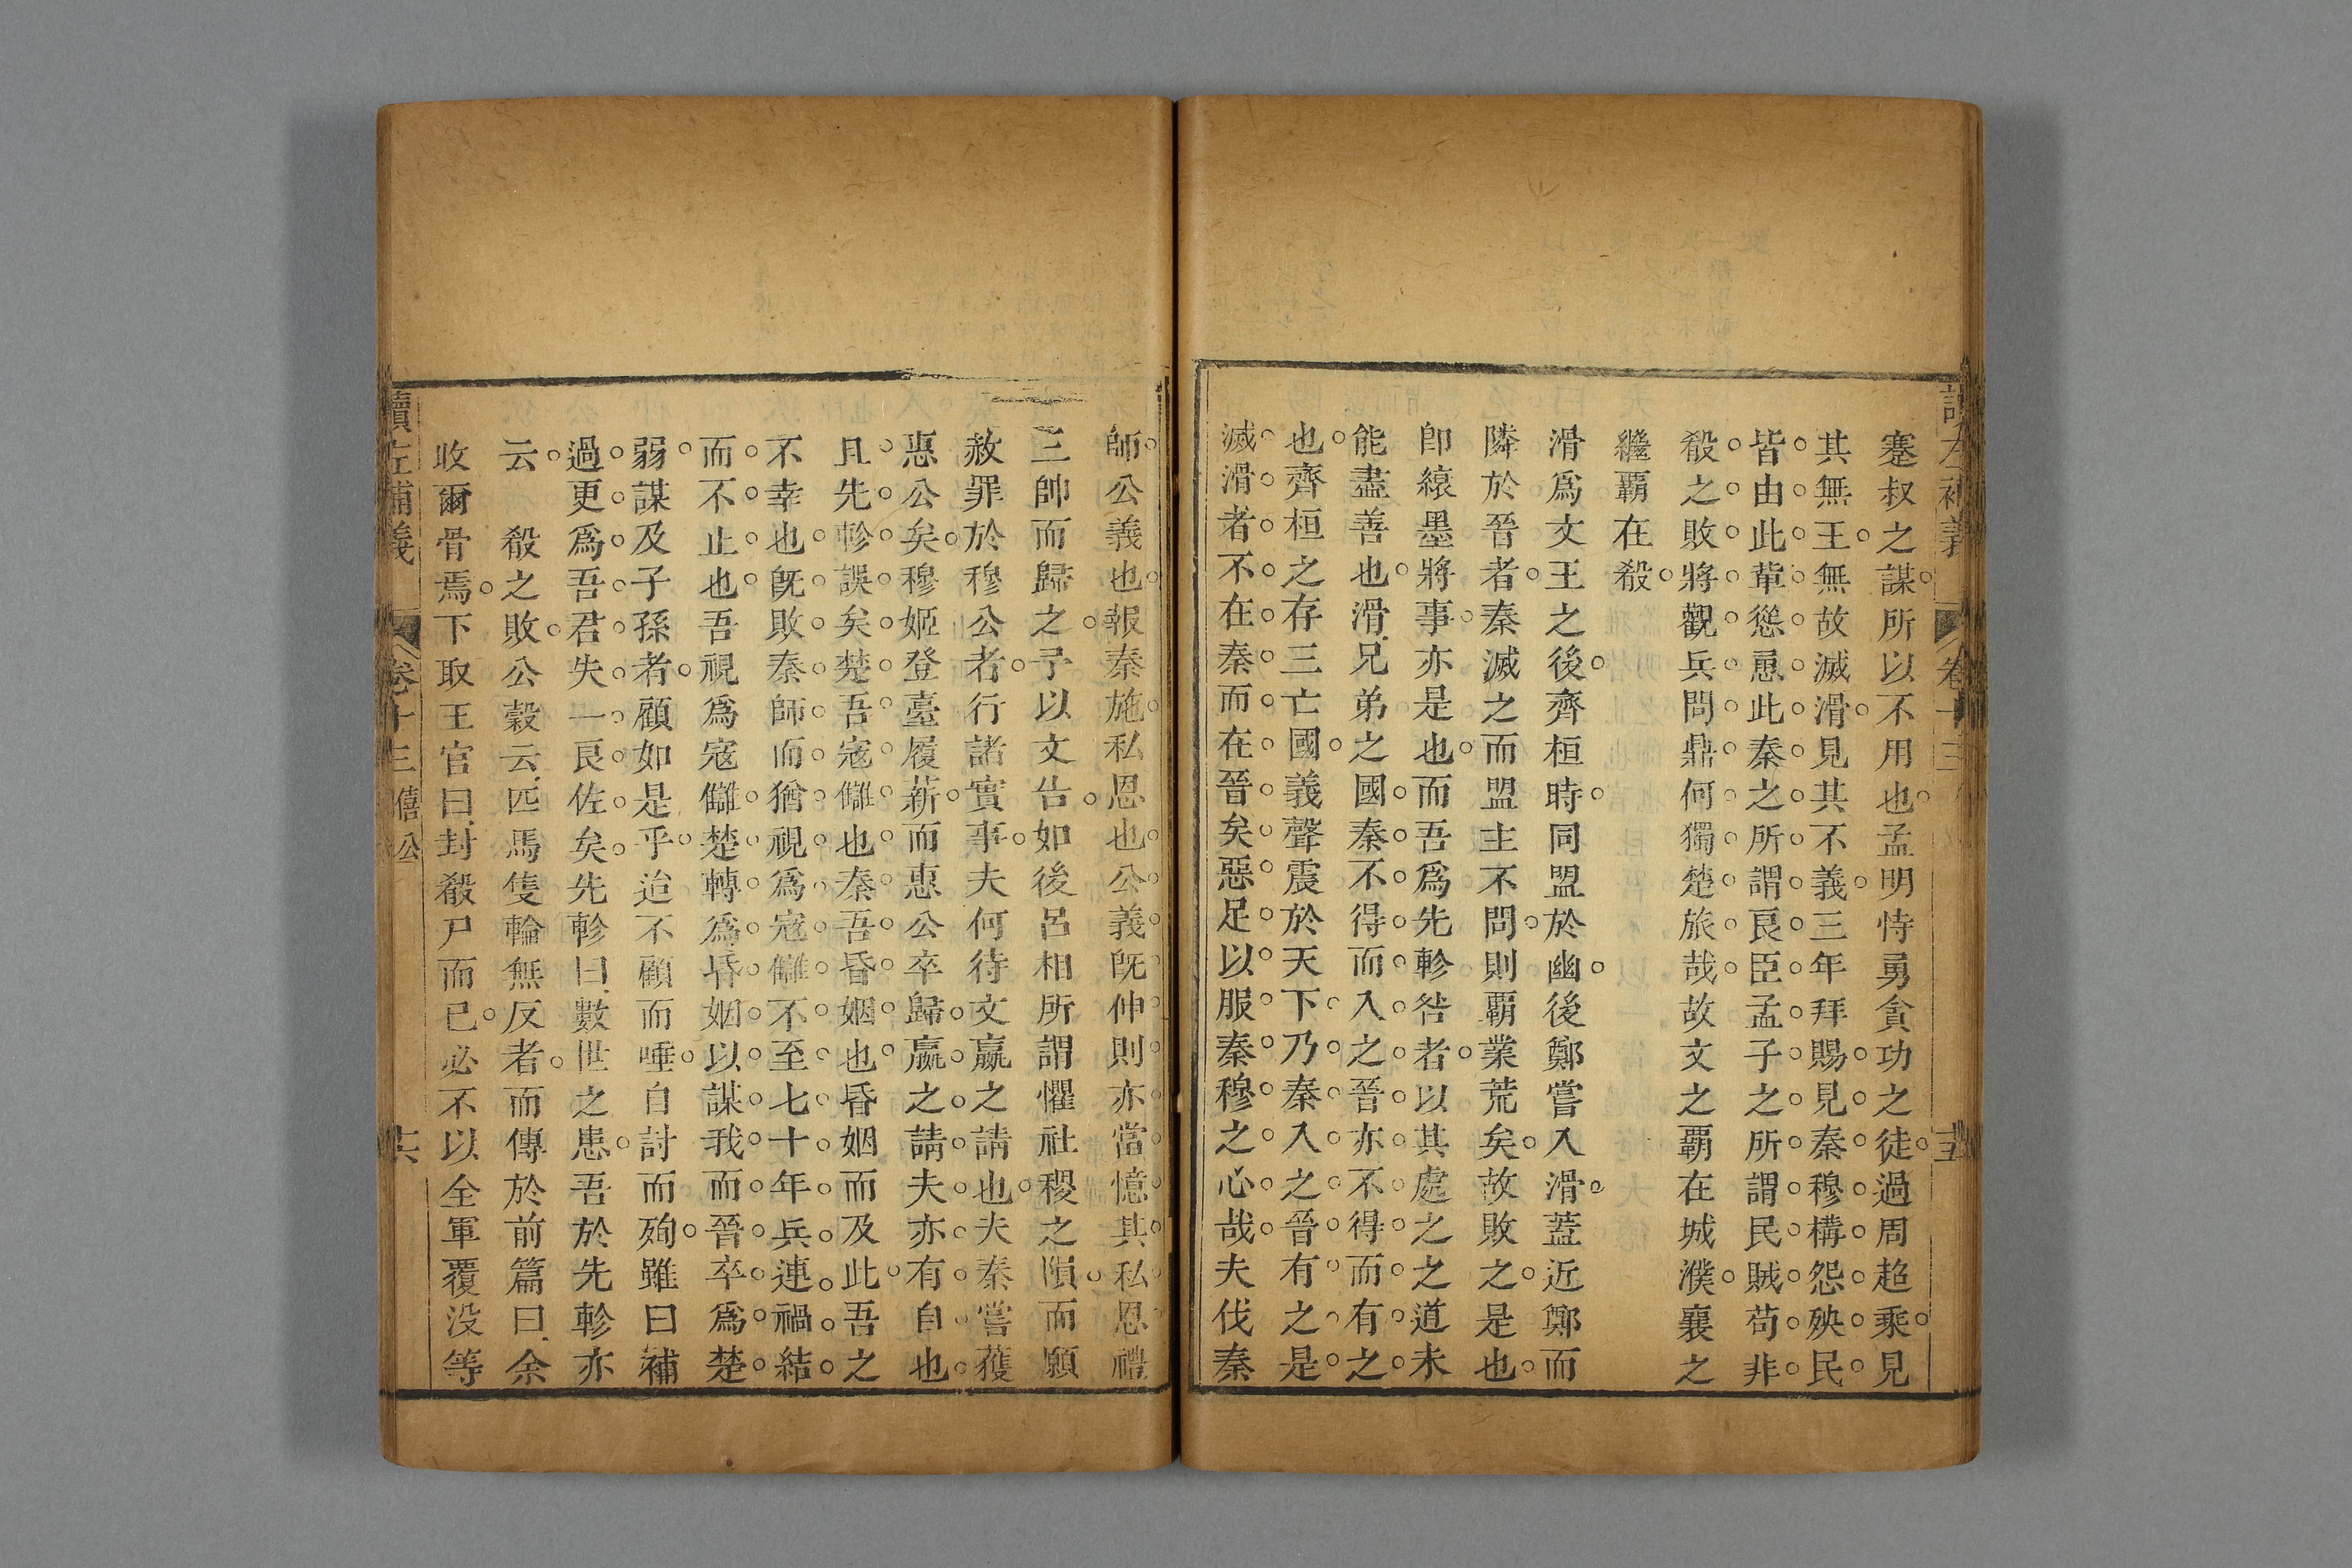 讀左補義 卷十三 五
蹇叔之謀所以不用也孟明恃勇貪功之徒過周超乘見
其無王無故滅滑見其不義三年拜賜見秦穆構怨殃民
皆由此輩慫恿此秦之所謂良臣孟子之所謂民賊苟非
殽之敗將觀兵問鼎何獨楚旅哉故文之覇在城濮襄之
繼覇在殽
滑爲文王之後齊桓時同盟於幽後鄭嘗入滑蓋近鄭而
隣於晉者秦滅之而盟主不問則覇業荒矣故敗之是也
卽縗墨將事亦是也而吾爲先軫咎者以其處之之道未
能盡善也滑兄弟之國秦不得而入之晉亦不得而有之
也齊桓之存三亡國義聲震於天下乃秦入之晉有之是
滅滑者不在秦而在晉矣惡足以服秦穆之心哉夫伐秦
師公義也報秦施私恩也公義旣伸則亦當憶其私恩禮
三帥而歸之予以文告如後呂相所謂懼社稷之隕而願
赦罪於穆公者行諸實事夫何待文嬴之請也夫秦嘗獲
惠公矣穆姬登臺履薪而惠公卒歸嬴之請夫亦有自也
且先軫誤矣楚吾寇讎也秦吾昏姻也昏姻而及此吾之
不幸也旣敗秦師而猶視爲寇讎不至七十年兵連禍結
而不止也吾視爲寇讎楚轉爲昏姻以謀我而晉卒爲楚
弱謀及子孫者顧如是乎迨不顧而唾自討而殉雖曰補
過更爲吾君失一良佐矣先軫曰數世之患吾於先軫亦
云 殽之敗公穀云匹馬隻輪無反者而傳於前篇曰余
收爾骨焉下取王官曰封殽尸而已必不以全軍覆没等
讀左補義 卷十三 僖公 十六